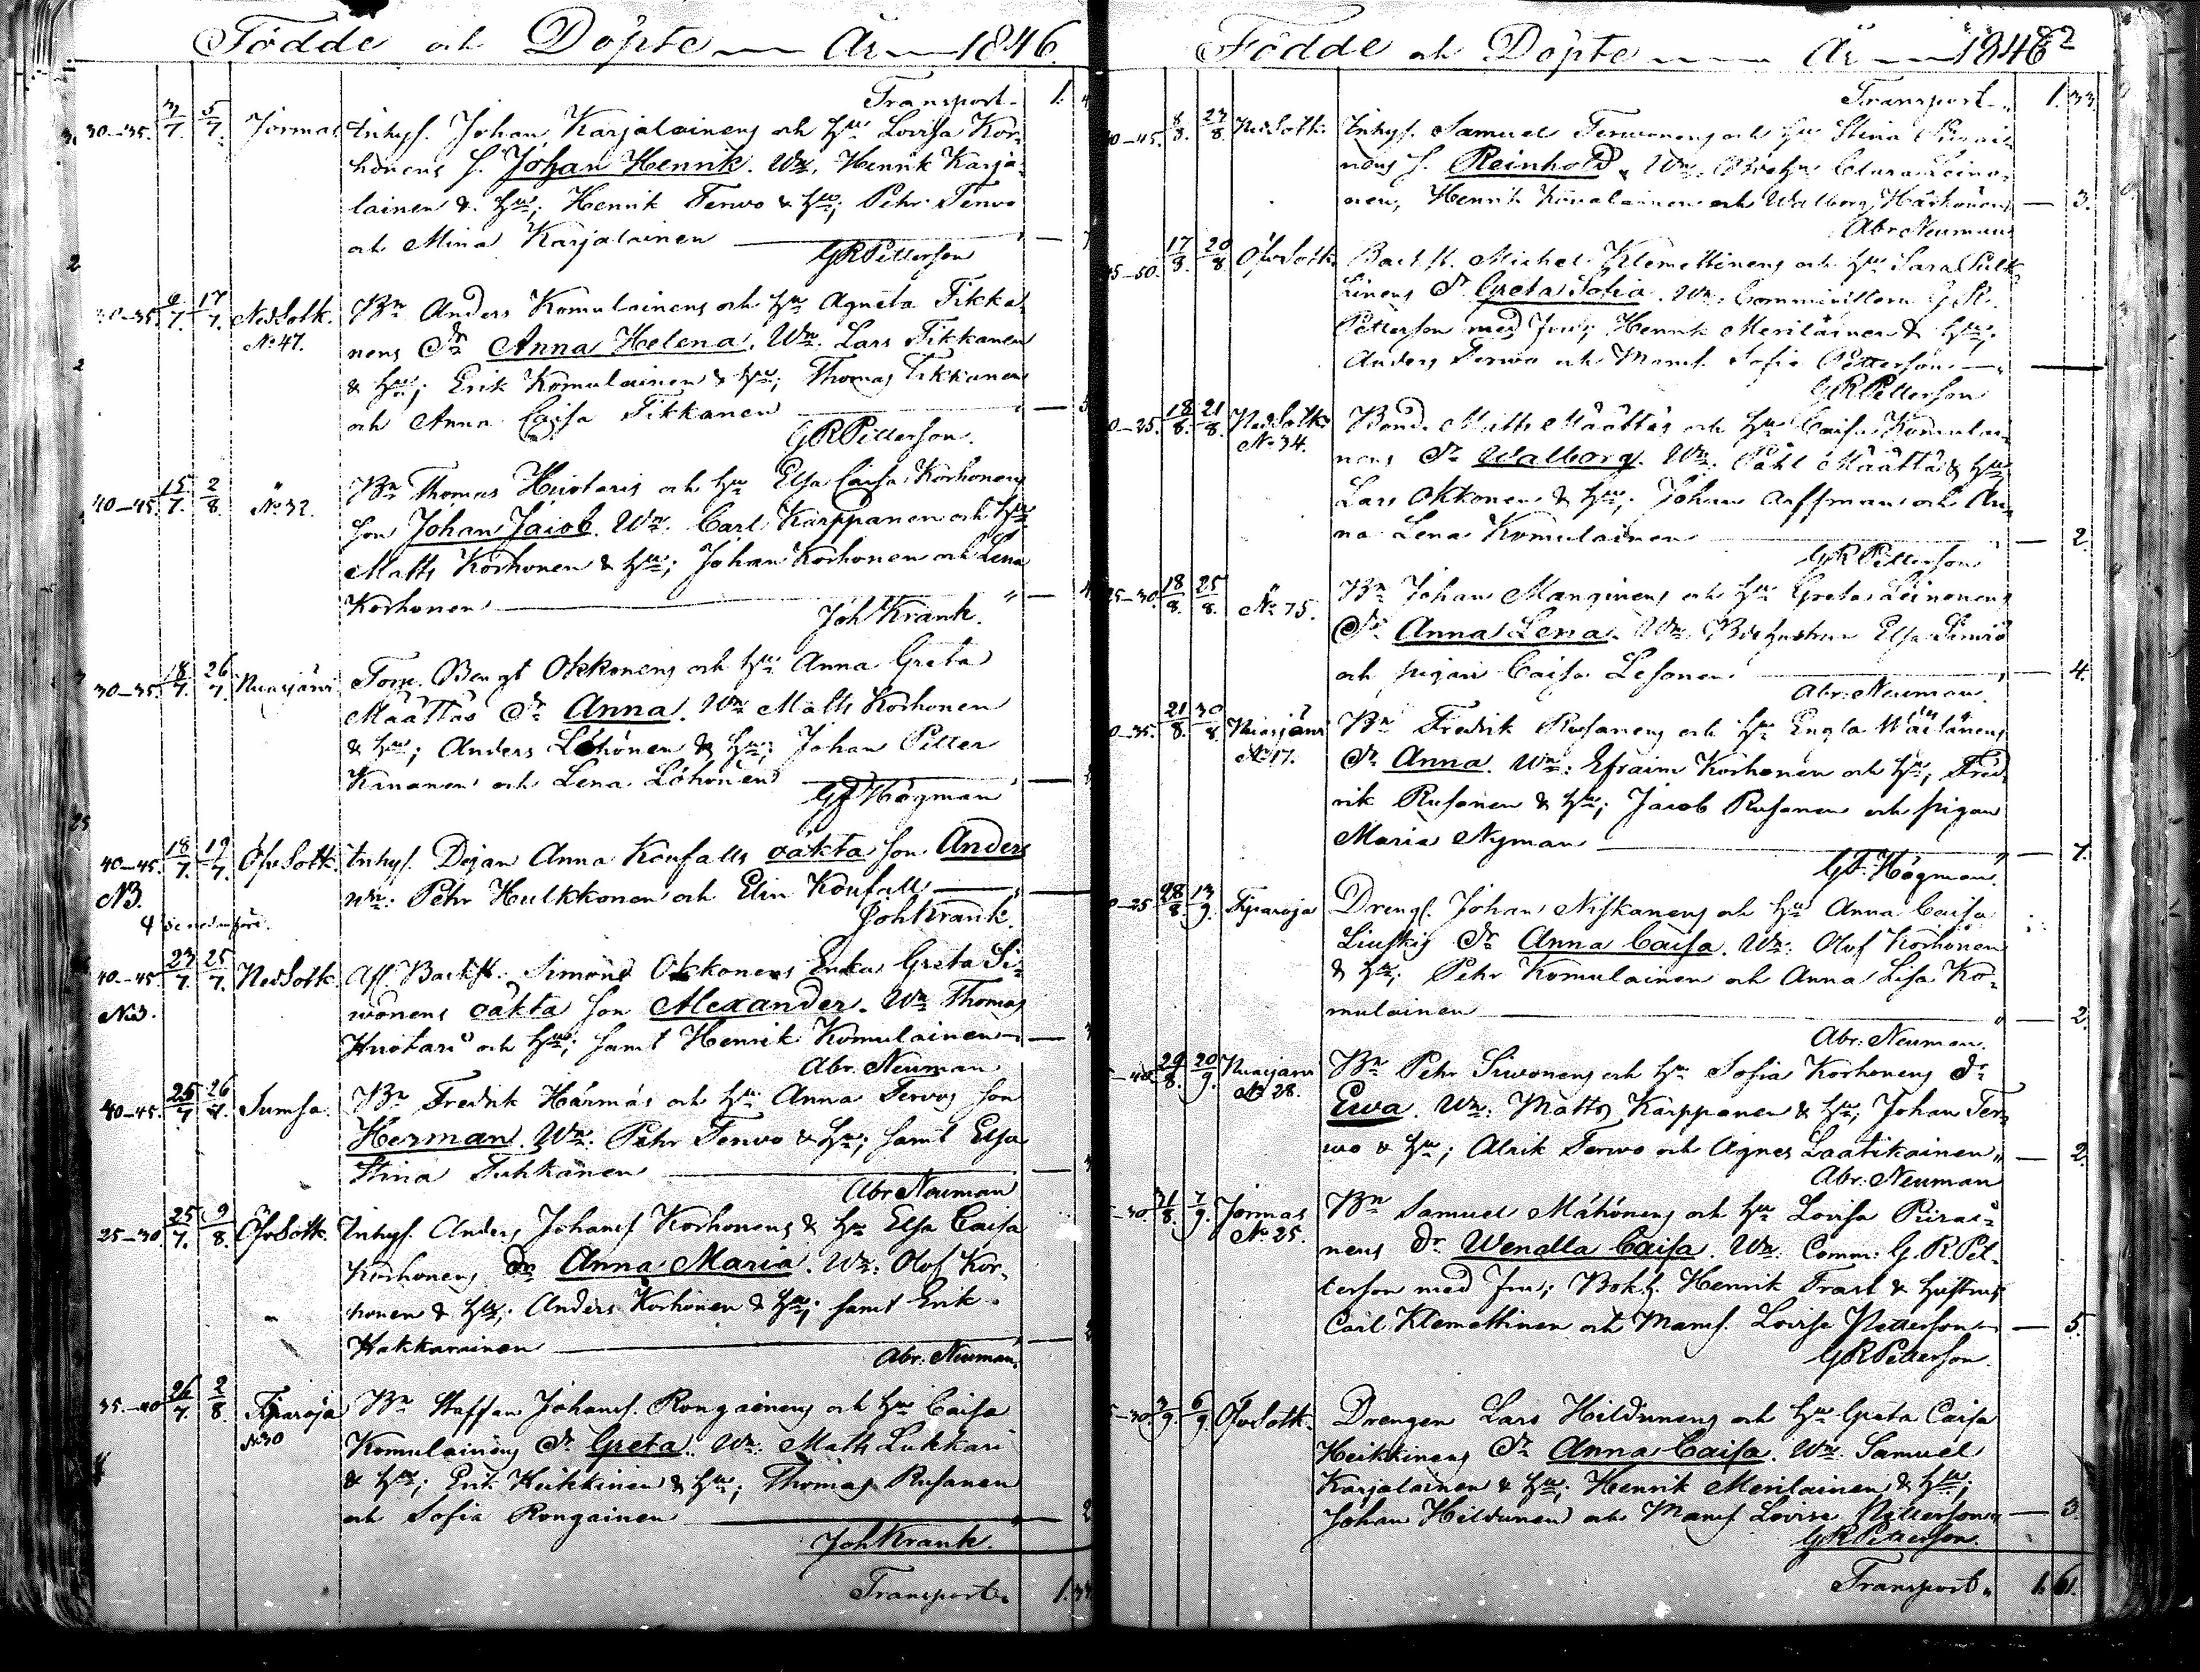 Födde och Döpte År 1846.
Transport 1.
30–35. 3/7. 5/7. Jormas Inhys. Johan Karjalainens och Hu Lovisa Kor-
honens S. Johan Henrik. Wn. Henrik Karja-
lainen & Hu; Henrik Terwo & Hu; Pehr Terwo
och Mina Karjalainen
GRPetterson
30–35. 6/7. 17/7. Ned Sotk. Bn Anders Komulainens och Hu Agneta Tikka-
No 47.
nens Dr Anna Helena. Wn. Lars Tikkanen
& Hu; Erik Komulainen & Hu; Thomas Tikkanen
och Anna Caisa Tikkanen
GRPetterson.
40–45. 15/7. 2/8 No 32. Bn Thomas Huotaris och Hu Elsa Caisa Korhonens
Son Johan Jacob. Wn. Carl Karppanen och Hu
Matts Korhonen & Hu; Johan Korhonen och Lena
Korhonen
Joh Krank.
30–35. 18/7. 26/7 Nuasjärvi Torp. Bengt Okkonens och Hu Anna Greta
Määttäs Dr Anna. Wn Matts Korhonen
& Hu; Anders Löhönen & Hu; Johan Petter
Kinanen och Lena Löhönen
GF Högman
40–45. 18/7. 19/7. Öfv Sotk. Inhys. Dejan Anna Koufalls oäkta Son Anders
NB.
Wn. Pehr Hulkkonen och Elin Koufall
Joh Krank.
40–45 23/7. 25/7. Ned Sotk Afl. Backst. Simon Okkonens Enka Greta Si-
NB.
wonens oäkta Son Alexander. Wn Thomas
Huotari och Hu; samt Henrik Komulainen
Abr. Neuman
40–45. 25/7 26/7. Sumsa. Bn Fredrik Härmäs och Hu Anna Terwos Son
Herman. Wn. Pehr Terwo & Hu; samt Elsa
Stina Tuhkanen
Abr Neuman
25–30 25/7. 9/8. Öfv Sotk. Inhys. Anders Johanss. Korhonens & Hu Elsa Caisa
Korhonens Dr Anna Maria. Wn. Olof Kor-
honen & Hu; Anders Korhonen & Hu; samt Erik
Hakkarainen
Abr. Neuman.
35–40 26/7. 2/8. Tiparoja Bn Staffan Johanss. Rongainens och Hu Caisa
No 30
Komulainens Dr Greta. Wn. Matts Lukkari
& Hu; Erik Heikkinen & Hu; Thomas Rusanen
och Sofia Rongainen
Joh Krank.
Transport. 1.
Födde och Döpte År 1846
Transport 1. 33.
8/8. 23/8 Ned Sotk. Inhys. Samuel Terwonens och Hu Stina Piirai-
nens S. Reinhold. Wn. Clara Leino-
nen, Henrik Kovalainen och Walborg Härkönen 3.
Abr Neuman
17/8. 20/8 Öfv Sotk. Backst. Michel Klemettinens och Hu Sara Pulk-
kinens Dr Greta Sofia. Wn. Comministern G. R.
Petterson med Fru; Henrik Meriläinen & Hu;
Anders Terwo och Mams. Sofia Petterson
GRPetterson
18/8. 21/8. Ned Sotk. Bond. Matts Määttäs och Hu Caisa Komulai-
No 34.
nens Dr Walborg. Wn. Påhl Määttä & Hu
Lars Okkonen & Hu; Johan Auffman och An-
na Lena Komulainen 2.
GRPetterson
25–30 18/8. 25/8. No 75. Bn Johan Manginens och Hu Greta Leinonens
Dr Anna Lena. Wn. Elsa Simio
och pigan Caisa Lesonen 4.
Abr. Neuman
21/8. 30/8 Nuasjärvi Bn Fredrik Rusanens och Hu Engla Wäilänens
No 17.
Dr Anna. Wn. Efraim Korhonen och Hu; Fred-
rik Rusanen & Hu; Jacob Rusanen och pigan
Maria Nyman 7.
GF. Högman.
28/8. 13/9. Tiparoja Drengs. Johan Niskanens och Hu Anna Caisa
Liuskis Dr Anna Caisa. Wn. Olof Korhonen
& Hu; Pehr Komulainen och Anna Lisa Ko-
mulainen 2.
Abr. Neuman.
29/8. 20/9. Nuasjärvi Bn Pehr Siwonens och Hu Sofia Korhonens Dr
No 28.
Ewa. Wn. Matts Karppanen & Hu; Johan Ter-
wo & Hu; Alrik Terwo och Agnes Laatikainen 2.
Abr. Neuman
31/8. 7/9. Jormas Bn Samuel Mähönens och Hu Lovisa Piirai-
No 25.
nens Dr Wenalla Caisa. Wn. Comm. G. R. Pet-
terson med Fru; Bokh. Henrik Trast & Hustru;
Carl Klemettinen och Mams. Lovisa Petterson 5.
GRPetterson.
3/9. 6/9. Öfv Sotk. Drengen Lars Hildunens och Hu Greta Caisa
Heikkinens Dr Anna Caisa. Wn. Samuel
Karjalainen & Hu; Henrik Meriläinen & Hu;
Johan Hildunen och Mams Lovisa Petterson 3.
GRPetterson.
Transport 1. 61.